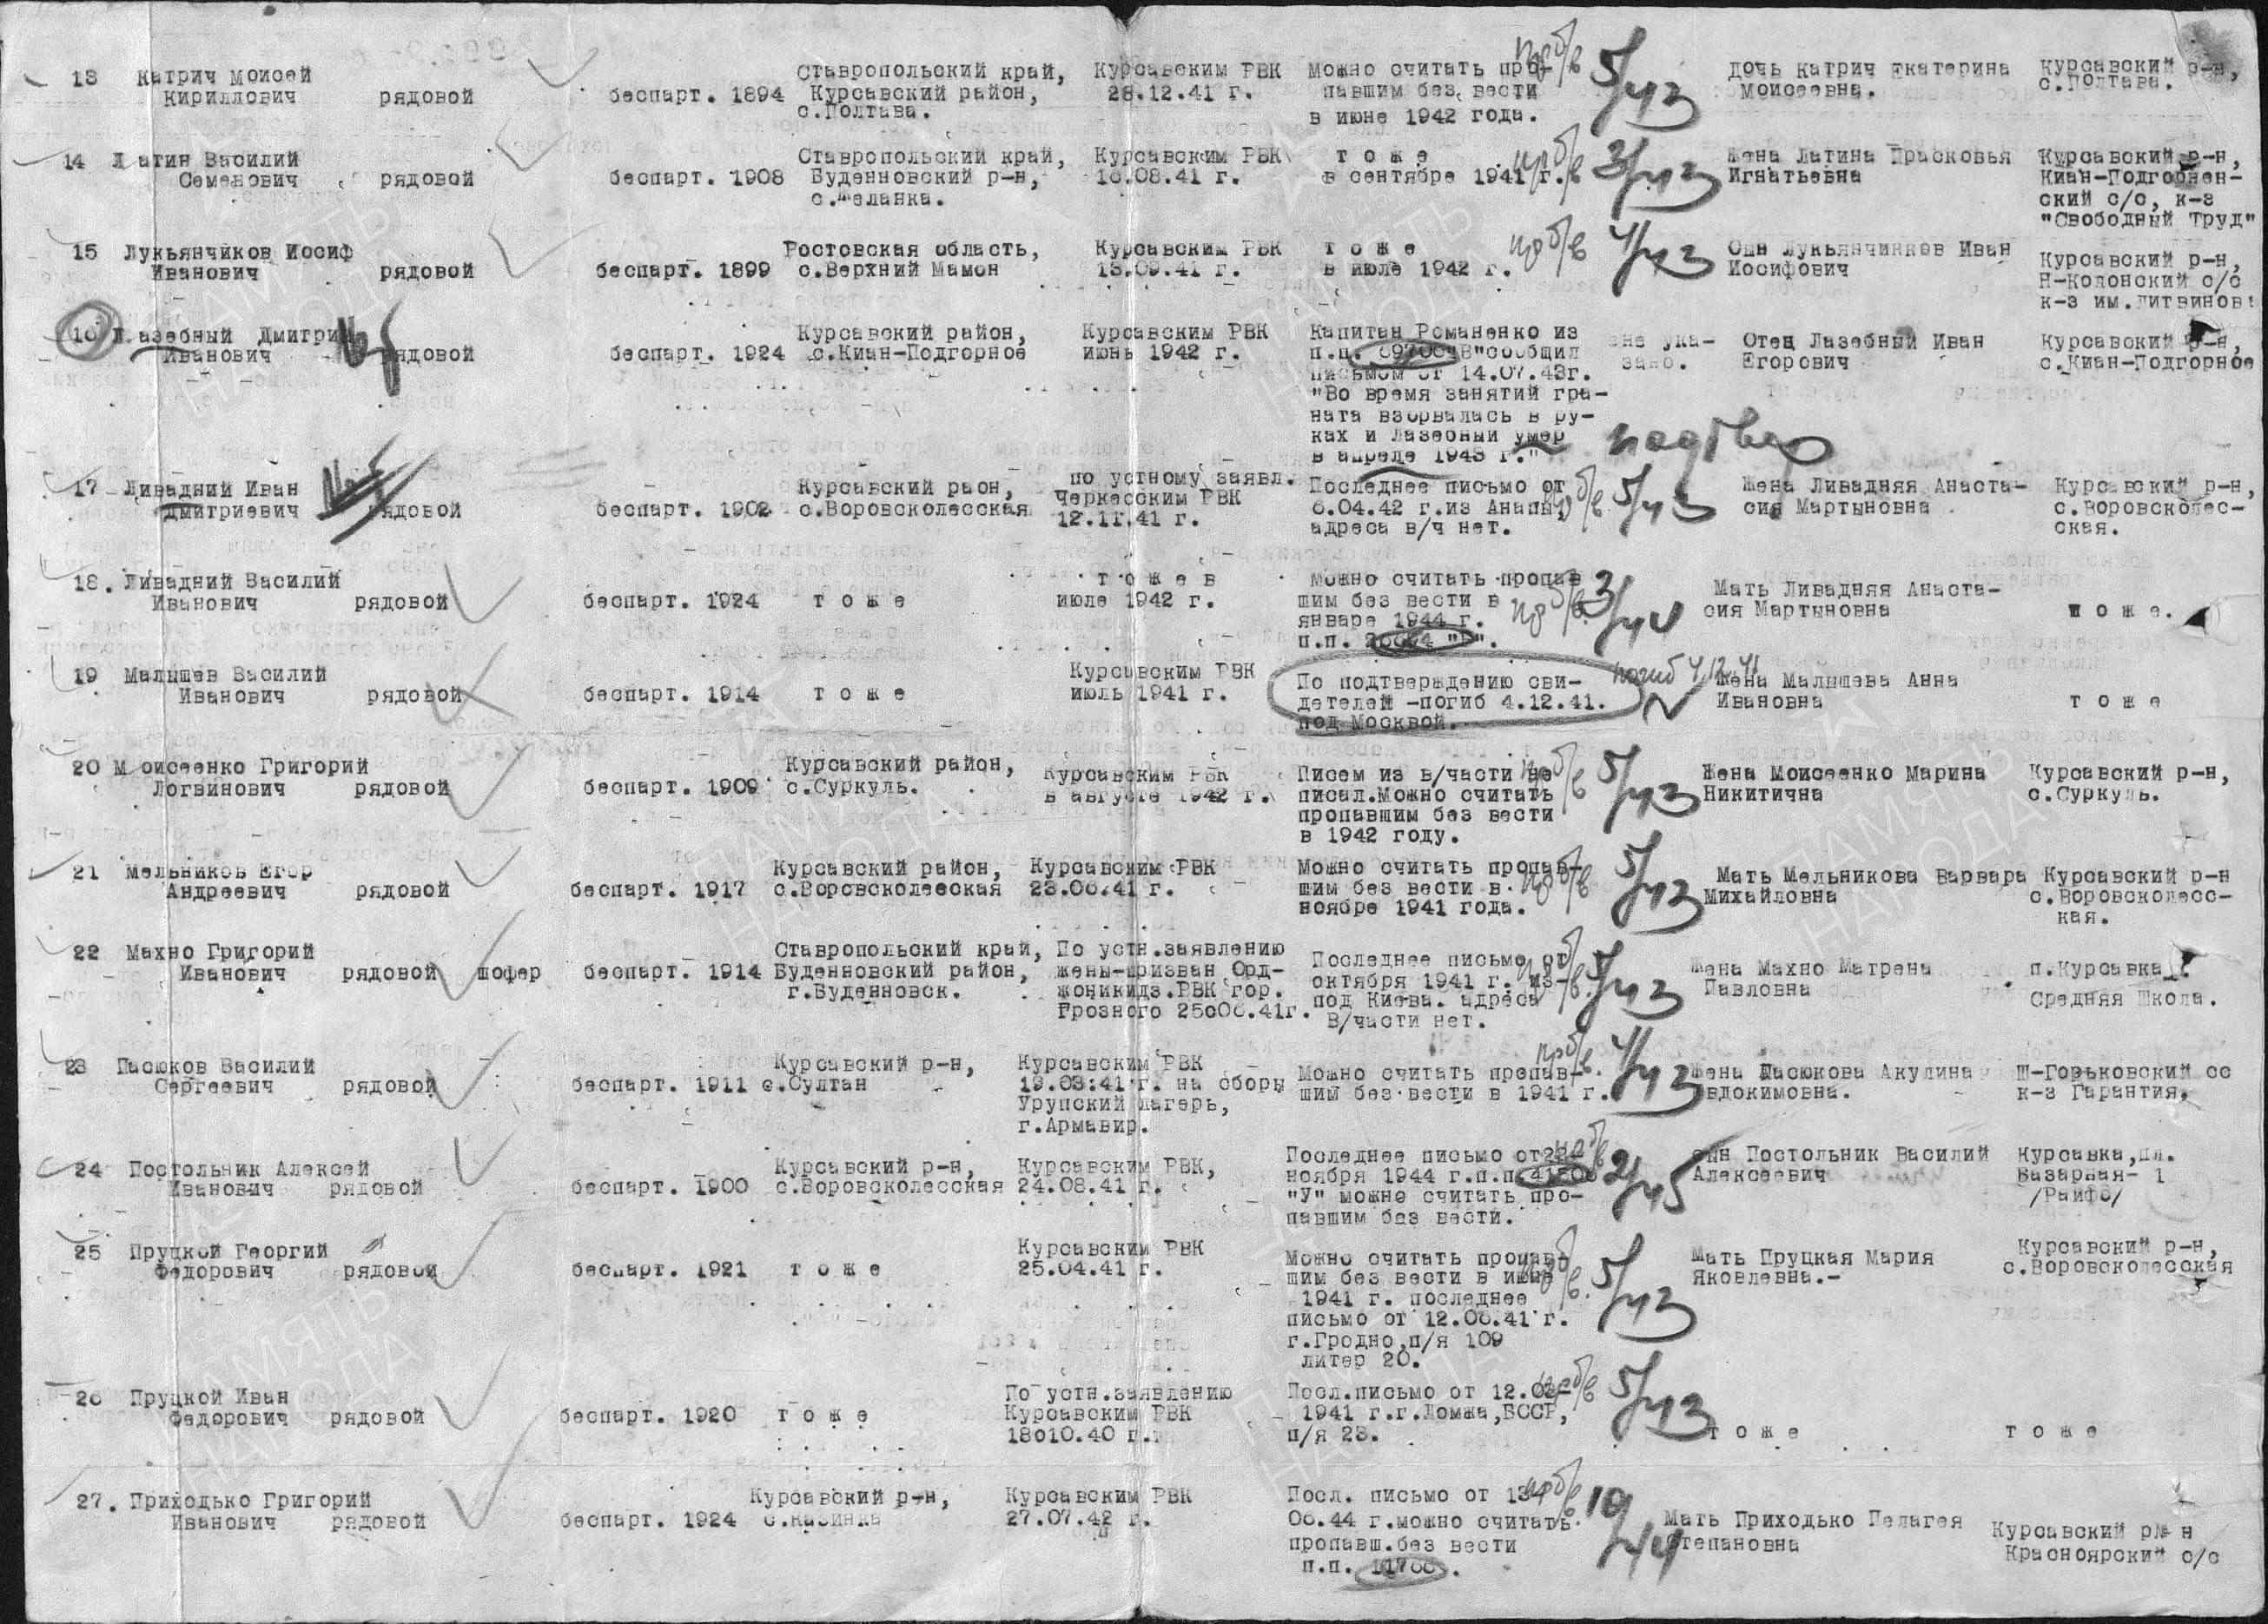 13 Катрич Моисей
Кириллович рядовой беспарт. 1894 Ставропольский край,
Курсавский район,
с.Полтава. Курсавским РВК
28.12.41 г. Можно считать про-
павшим без вести
в июне 1942 года. пр б/в 5/43 Дочь Катрич Екатерина
Моисеевна. Курсавский р-н,
с.Полтава.
14 Латин Василий
Семенович рядовой беспарт. 1908 Ставропольский край,
Буденновский р-н,
Курсавским РВК
.08.41 г. т о ж е
в сентябре 1941 г. пр б/в 3/43 Жена Латина Прасковья
Игнатьевна Курсавский р-н,
Киан-Подгорнен-
ский с/с, к-з
"Свободный Труд"
15 Лукьянчиков Иосиф
Иванович рядовой беспарт. 1899 Ростовская область,
с.Верхний Мамон Курсавским РВК
13.09.41 г. т о ж е
в июле 1942 г. пр б/в 4/43 Сын Лукьянчинков Иван
Иосифович Курсавский р-н,
Н-Колонский с/с
к-з им.Литвинова
16 Лазебный Дмитрий
Иванович рядовой беспарт. 1924 Курсавский район,
с.Киан-Подгорное Курсавским РВК
июнь 1942 г. Капитан Романенко из
п.ц. "В"сообщил
письмом от 14.07.43г.
"Во время занятий гра-
ната взорвалась в ру-
ках и Лазебный умер
в апреле 1943 г." не ука-
зано. Отец Лазебный Иван
Егорович Курсавский р-н,
с.Киан-Подгорное
17 Ливадний Иван
Дмитриевич рядовой беспарт. 1902 Курсавский раон,
с.Воровсколесская по устному заявл.
Черкесским РВК
12.11.41 г. Последнее письмо от
6.04.42 г.из Анапы,
адреса в/ч нет. б/в 5/43 Жена Ливадняя Анаста-
сия Мартыновна Курсавский р-н,
с.Воровсколес-
ская.
18. Ливадний Василий
Иванович рядовой беспарт. 1924 т о ж е т о ж е в
июле 1942 г. Можно считать пропав
шим без вести в
январе 1944 г.
п.п. пр б/в 3/44 Мать Ливадняя Анаста-
сия Мартыновна т о ж е.
19 Малышев Василий
Иванович рядовой беспарт. 1914 т о ж е Курсавским РВК
июль 1941 г. По подтверждению сви-
детелей -погиб 4.12.41.
под Москвой. погиб 4.12.41 Жена Малышева Анна
Ивановна т о ж е
20 Моисеенко Григорий
Логвинович рядовой беспарт. 1909 Курсавский район,
с.Суркуль. Курсавским РВК
в августе 1942 г. Писем из в/части не
писал.Можно считать
пропавшим без вести
в 1942 году. пр б/в 5/43 Жена Моисеенко Марина
Никитична Курсавский р-н,
с.Суркуль.
21 Мельников Егор
Андреевич рядовой беспарт. 1917 Курсавский район,
с.Воровсколесская Курсавским РВК
23.06.41 г. Можно считать пропав-
шим без вести в
ноябре 1941 года. пр б/в 5/43 Мать Мельникова Варвара
Михайловна Курсавский р-н
с.Воровсколесс-
кая.
22 Махно Григорий
Иванович рядовой шофер беспарт. 1914 Ставропольский край,
Буденновский район,
г.Буденновск. По устн.заявлению
жены-призван Орд-
жоникидз.РВК гор.
Грозного 25о06.41г. Последнее письмо от
октября 1941 г. из-
под Киева. адреса
В/части нет. б/в 5/43 Жена Махно Матрена
Павловна п.Курсавка
Средняя Школа.
23 Пасюков Василий
Сергеевич рядовой беспарт. 1911 Курсавский р-н,
с.Султан Курсавским РВК
19.03.41 г. на сборы
Урупский лагерь,
г.Армавир. Можно считать пропав-
шим без вести в 1941 г. пр б/в 4/43 Жена Пасюкова Акулина
Евдокимовна. Ш-Горьковский сс
к-з Гарантия.
24 Постольник Алексей
Иванович рядовой беспарт. 1900 Курсавский р-н,
с.Воровсколесская Курсавским РВК,
24.08.41 г. Последнее письмо от
ноября 1944 г.п.п.
"У" можно считать про-
павшим без вести. пр б/в 2/45 сын Постольник Василий
Алексеевич Курсавка,пл.
Базарная- 1
/Райфо/
25 Пруцкой Георгий
Федорович рядовой беспарт. 1921 т о ж е Курсавским РВК
25.04.41 г. Можно считать пропав-
шим без вести в июне
1941 г. последнее
письмо от 12.06.41 г.
г.Гродно,п/я 109
литер 20. пр б/в. 5/43 Мать Пруцкая Мария
Яковлевна.- Курсавский р-н,
с.Воровсколесская
26 Пруцкой Иван
Федорович рядовой беспарт. 1920 т о ж е По устн.заявлению
Курсавским РВК
18о10.40 г. Посл.письмо от 12.
1941 г.г.Ломжа,БССР,
п/я 23. пр б/в 5/43 т о ж е т о ж е
27. Приходько Григорий
Иванович рядовой беспарт. 1924 Курсавский р-н,
с.Казинка Курсавским РВК
27.07.42 г. Посл. письмо от
06.44 г.можно считать
пропавш.без вести
п.п. пр б/в 10/44 Мать Приходько Пелагея
Степановна Курсавский р н
Красноярский с/с
ПАМЯТЬ
НАРОДА